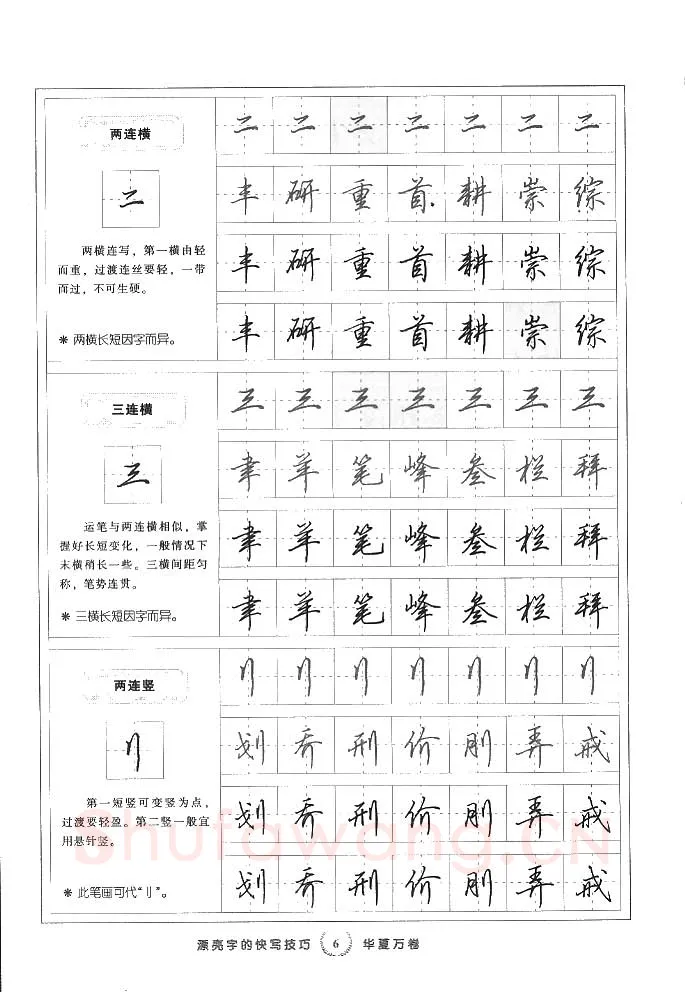 两连横
二
二 二 二 二 二 二 二
丰 研 重 首 耕 崇 综
丰 研 重 首 耕 崇 综
丰 研 重 首 耕 崇 综
两横连写，第一横由轻
而重，过渡连丝要轻，一带
而过，不可生硬。
* 两横长短因字而异。
三连横
三
三 三 三 三 三 三 三
聿 羊 笔 峰 叁 栏 拜
聿 羊 笔 峰 叁 栏 拜
聿 羊 笔 峰 叁 栏 拜
运笔与两连横相似，掌
握好长短变化，一般情况下
末横稍长一些。三横间距匀
称，笔势连贯。
* 三横长短因字而异。
两连竖
刂
刂 刂 刂 刂 刂 刂 刂
划 乔 刑 价 刚 弄 戒
划 乔 刑 价 刚 弄 戒
划 乔 刑 价 刚 弄 戒
第一短竖可变竖为点，
过渡要轻盈。第二竖一般宜
用悬针竖。
* 此笔画可代“刂”。
Shufawang.CN
漂亮字的快写技巧 6 华夏万卷